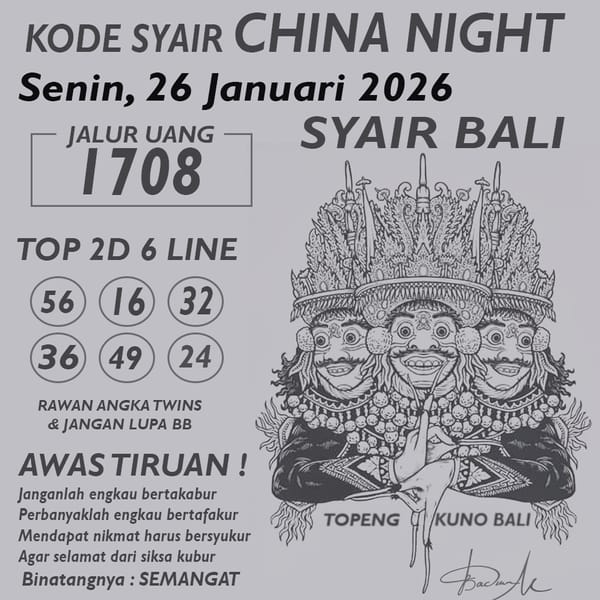 KODE SYAIR CHINA NIGHT
Senin, 26 Januari 2026
JALUR UANG
1708
SYAIR BALI
TOP 2D 6 LINE
56 16 32
36 49 24
RAWAN ANGKA TWINS
& JANGAN LUPA BB
AWAS TIRUAN !
Janganlah engkau bertakabur
Perbanyaklah engkau bertafakur
Mendapat nikmat harus bersyukur
Agar selamat dari siksa kubur
Binatangnya : SEMANGAT
TOPENG KUNO BALI